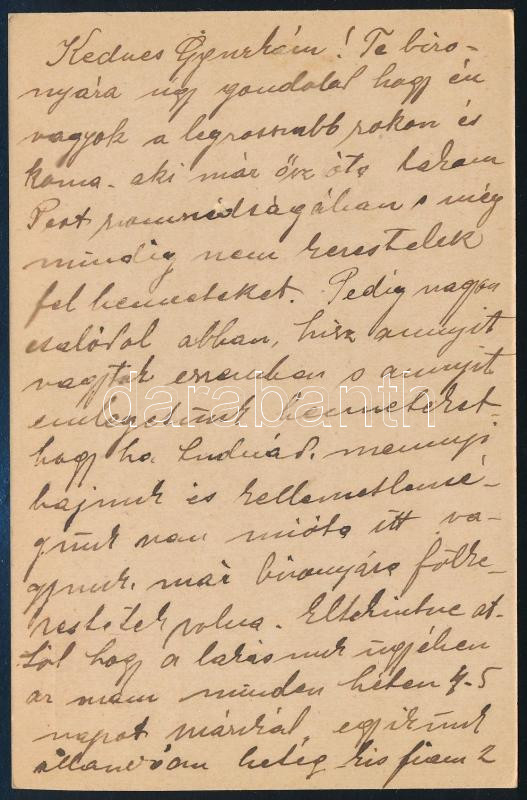 Kedves Gyurkám! Te bizo-
nyára úgy gondolod hogy én
vagyok a legrosszabb rokon és
koma. aki már ősz óta lakom
Pest szomszédságában s még
mindig nem kerestelek
fel benneteket. Pedig nagyon
csalódol abban, hisz annyit
vagytok eszemben s annyit
emlegetünk benneteket
hogy ha tudnád, mennyi
bajunk és kellemetlensé-
günk van mióta itt va-
gyunk, már bizonyára fölke-
restetek volna. Eltekintve at-
tól hogy a lakásunk ügyében
az uram minden héten 4-5
napot mászkál, egyikünk
állandóan beteg kis fiam 2
darabanth